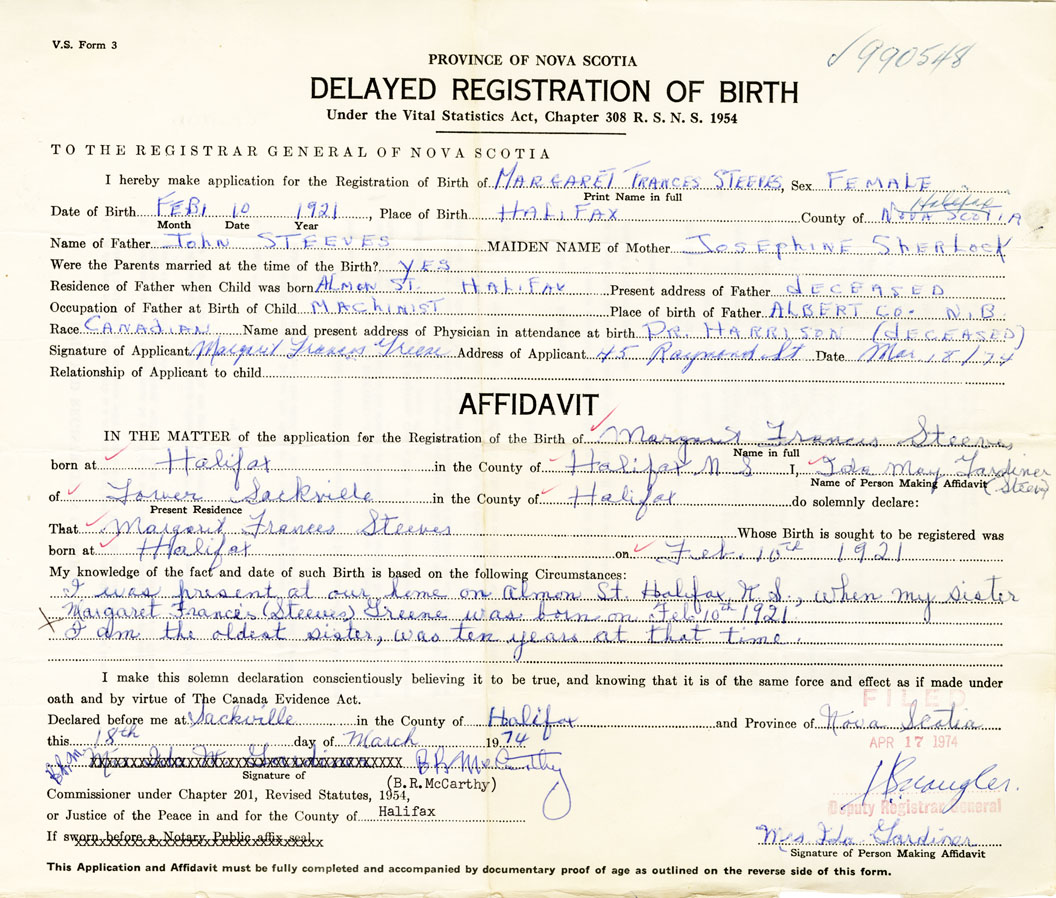 V.S. Form 3
√990548
PROVINCE OF NOVA SCOTIA
DELAYED REGISTRATION OF BIRTH
Under the Vital Statistics Act, Chapter 308 R. S. N. S. 1954
TO THE REGISTRAR GENERAL OF NOVA SCOTIA
I hereby make application for the Registration of Birth of MARGARET FRANCES STEEVES, Sex FEMALE
Print Name in full
Halifax
Date of Birth FEB. 10 1921, Place of Birth HALIFAX County of NOVA SCOTIA
Month Date Year
Name of Father JOHN STEEVES MAIDEN NAME of Mother JOSEPHINE SHERLOCK
Were the Parents married at the time of the Birth? YES
Residence of Father when Child was born ALMON ST. HALIFAX Present address of Father DECEASED
Occupation of Father at Birth of Child MACHINIST Place of birth of Father ALBERT CO. N.B
Race CANADIAN Name and present address of Physician in attendance at birth DR. HARRISON (DECEASED)
Signature of Applicant Margaret Frances Greene Address of Applicant 45 Raymond St Date Mar. 18/74
Relationship of Applicant to child
AFFIDAVIT
IN THE MATTER of the application for the Registration of the Birth of Margaret Frances Steeves
Name in full
born at Halifax in the County of Halifax N S I, Ida May Gardiner
Name of Person Making Affidavit (Steeves)
of Lower Sackville in the County of Halifax do solemnly declare:
Present Residence
That Margaret Frances Steeves Whose Birth is sought to be registered was
born at Halifax on Feb. 10th 1921
My knowledge of the fact and date of such Birth is based on the following Circumstances:
I was present at our home on Almon St. Halifax, N.S., when my sister
Margaret Frances (Steeves) Greene was born on Feb 10th 1921
X I am the oldest sister, was ten years at that time.
I make this solemn declaration conscientiously believing it to be true, and knowing that it is of the same force and effect as if made under
oath and by virtue of The Canada Evidence Act.
FILED
Declared before me at Sackville in the County of Halifax and Province of Nova Scotia
this 18th day of March 1974
APR 17 1974
B.R.M. Mrs Ida M. Gardiner B R McCarthy
Signature of
(B.R.McCarthy)
Commissioner under Chapter 201, Revised Statutes, 1954,
or Justice of the Peace in and for the County of Halifax
Deputy Registrar General
If sworn before a Notary Public affix seal.
Mrs Ida Gardiner
Signature of Person Making Affidavit
This Application and Affidavit must be fully completed and accompanied by documentary proof of age as outlined on the reverse side of this form.